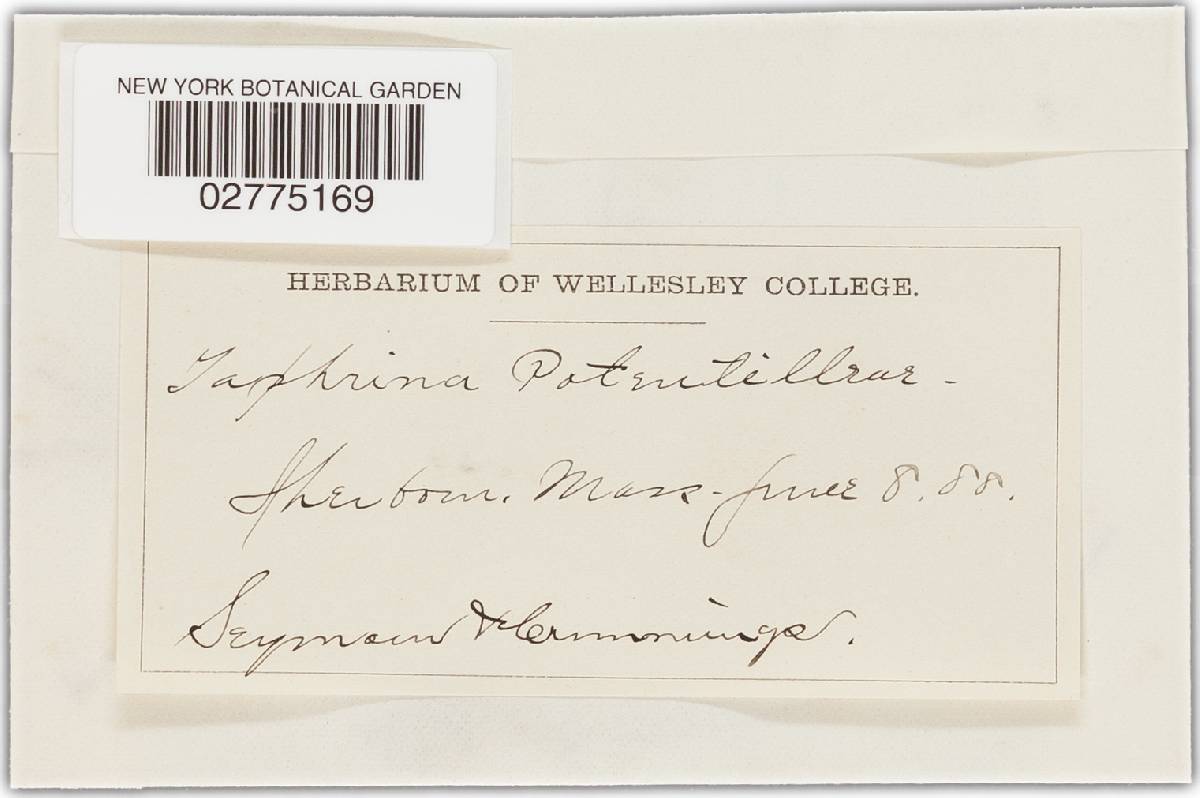 NEW YORK BOTANICAL GARDEN
02775169
HERBARIUM OF WELLESLEY COLLEGE.
Taphrina Potentilleae -
Sherborn. Mass - June 8. 88.
Seymour & Cummings.